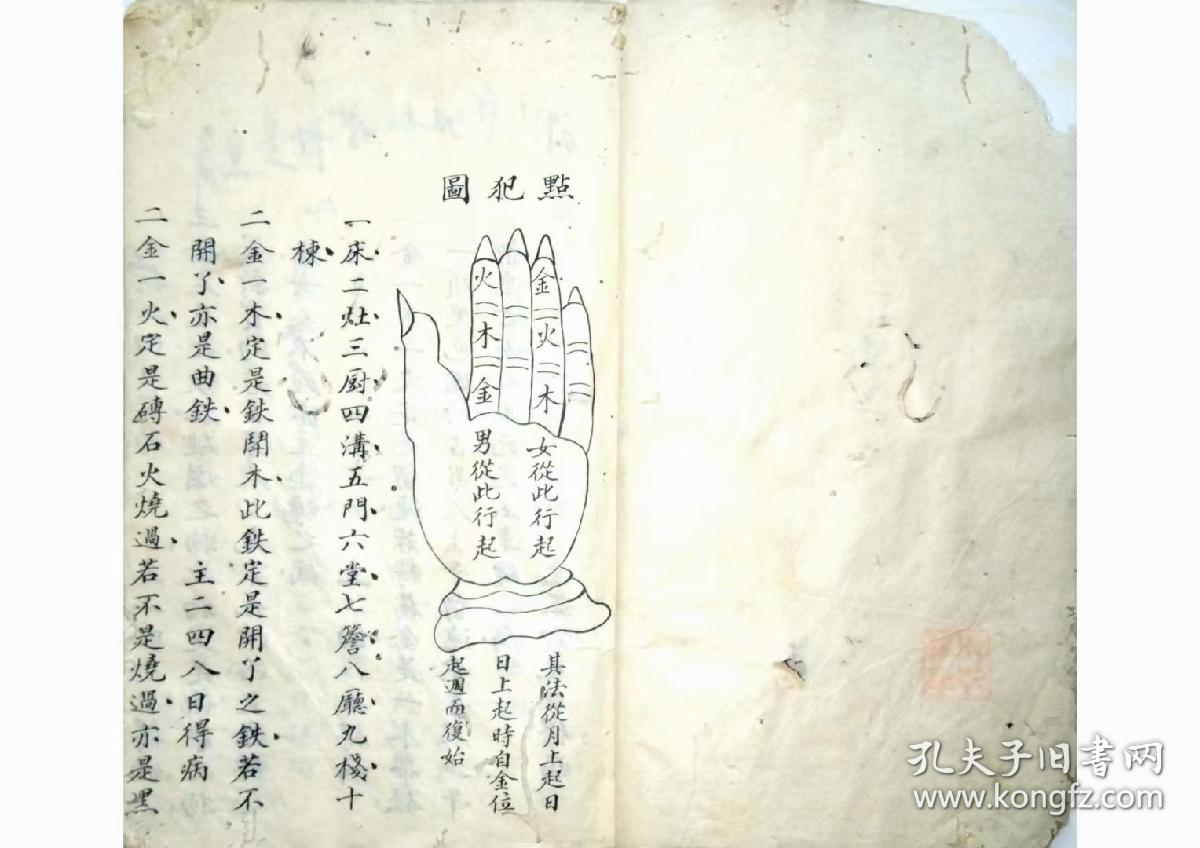 點犯圖
火
木
金
金
火
木
女從此行起
男從此行起
其法從月上起日
日上起時自金位
起週而復始
一床二灶三厨四溝五門六堂七簷八廳九棧十
棟
二金一木定是鉄鬪木此鉄定是開丫之鉄若不
開了亦是曲鉄 主二四八日得病
二金一火定是磚石火燒過若不是燒過亦是黑
孔夫子旧书网
www.kongfz.com